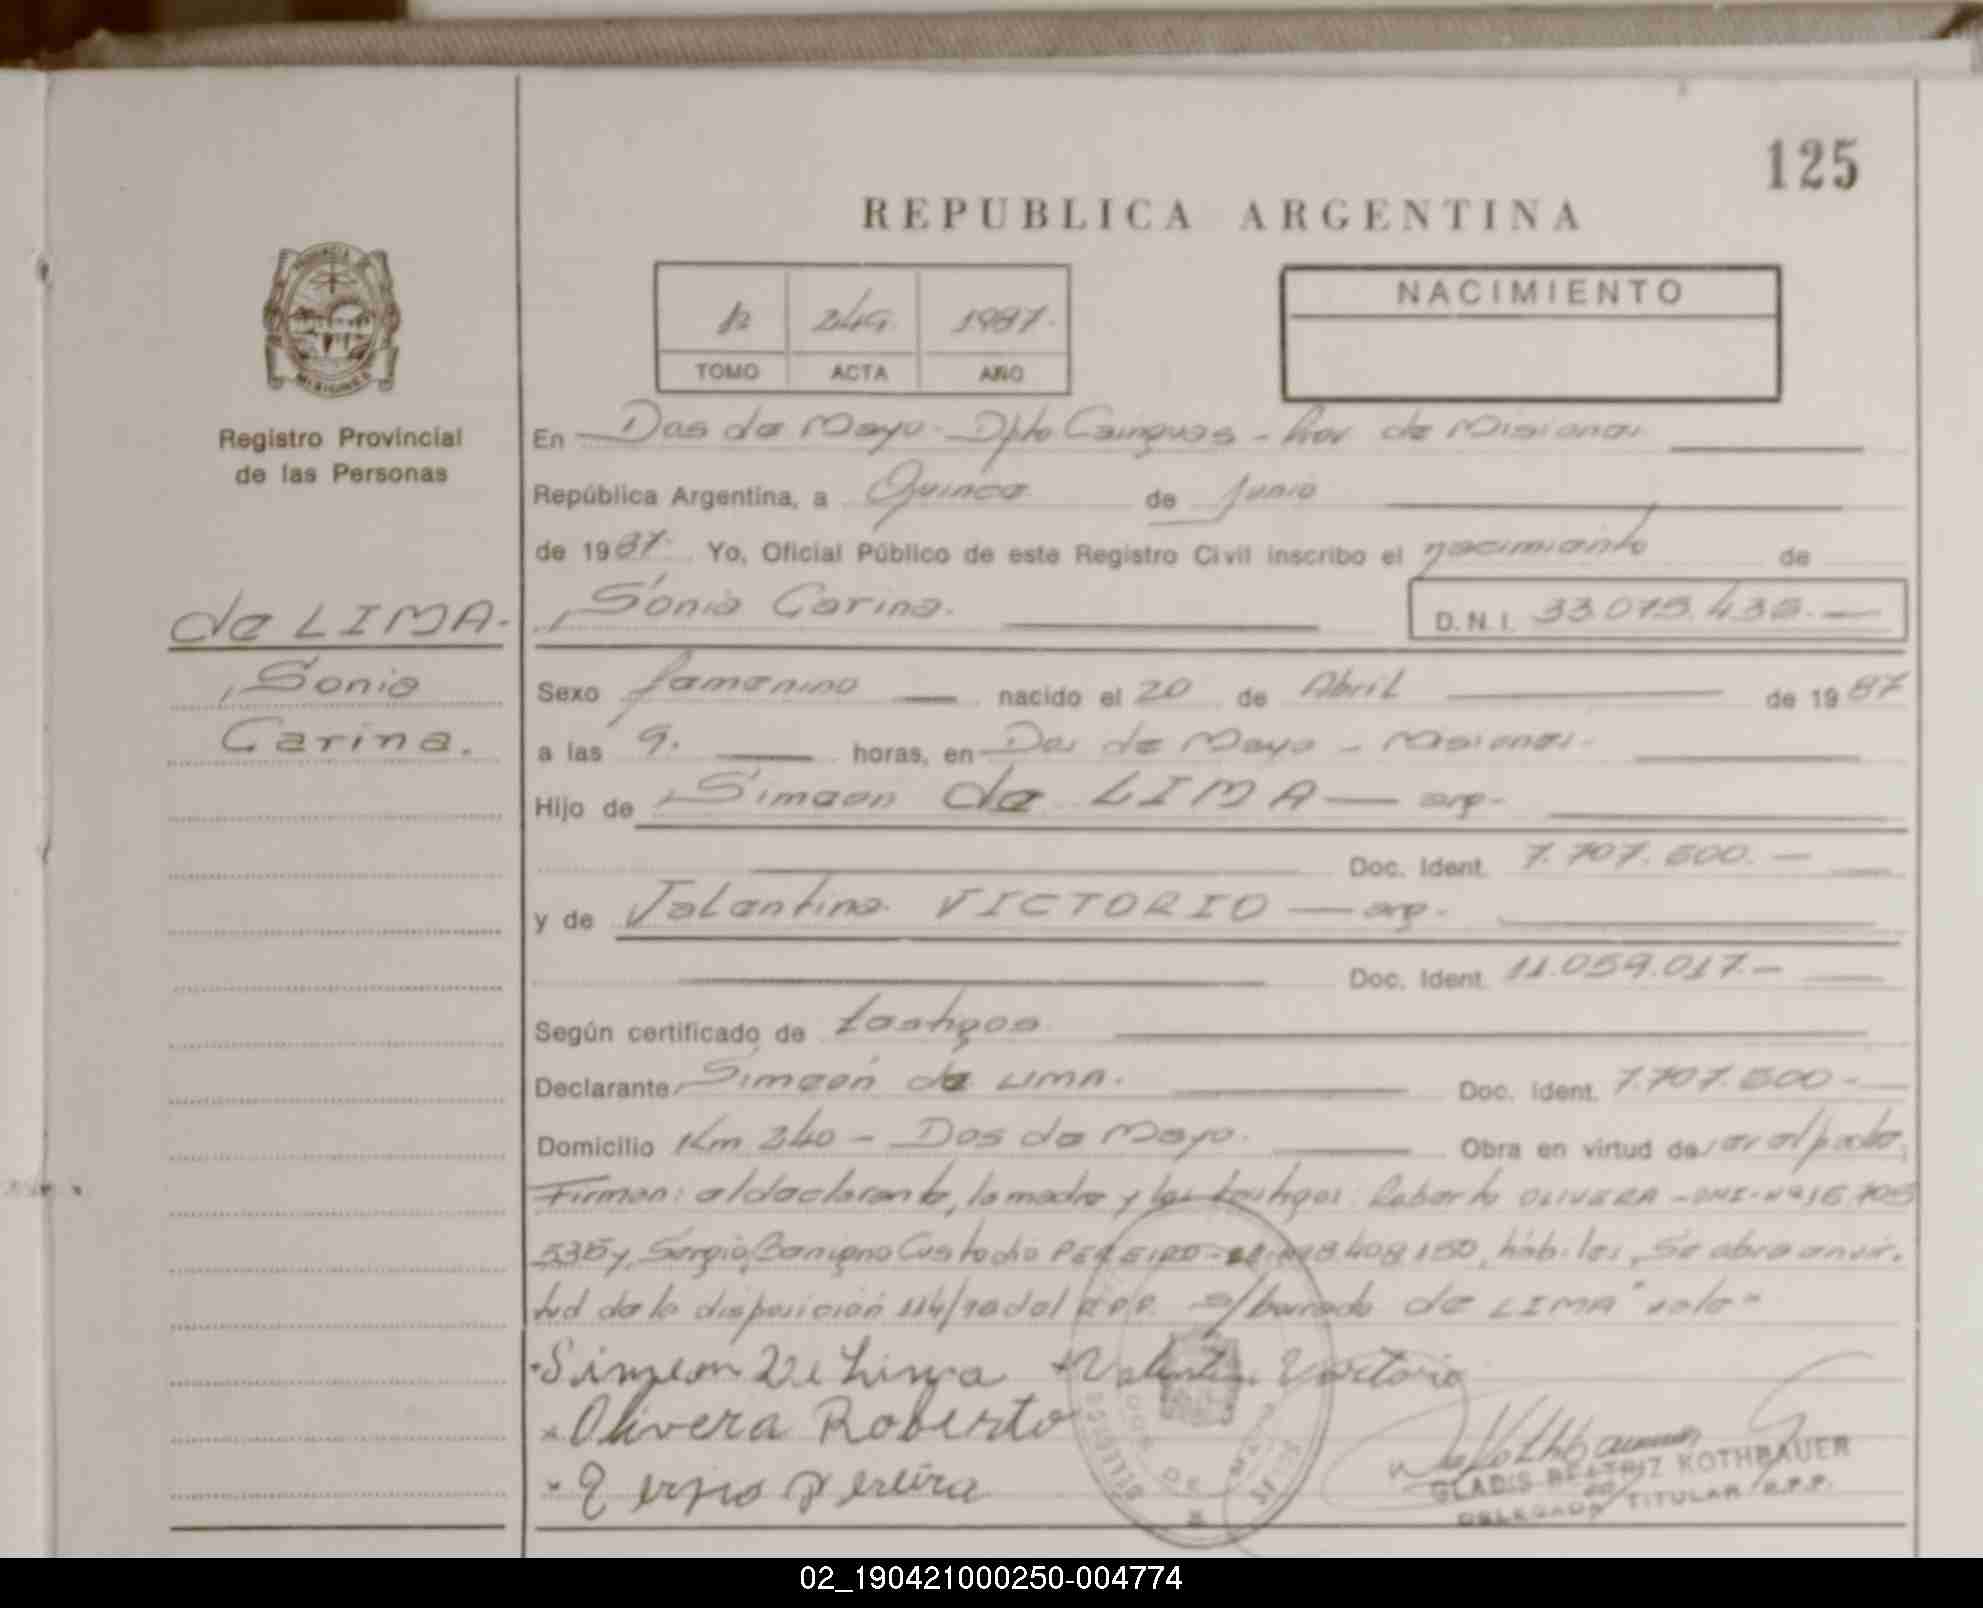 125
REPUBLICA ARGENTINA
PROVINCIA
MISIONES
Registro Provincial
de las Personas
1987.
TOMO ACTA AÑO
NACIMIENTO
En Dos de Mayo - Dpto Cainguas - Prov de Misiones
República Argentina, a Quince de Junio
de 1987. Yo, Oficial Público de este Registro Civil inscribo el nacimiento de
de LIMA. Sonia Carina. D.N.I. 33.075.435.
Sonia
Carina.
Sexo femenino nacido el 20 de Abril de 1987
a las 9. horas, en Dos de Mayo - Misiones.
Hijo de Simeon de LIMA arg.
Doc. Ident. 7.707.500.
y de Valentina VICTORIO arg.
Doc. Ident. 11.059.017.
Según certificado de testigos
Declarante Simeón de LIMA. Doc. Ident. 7.707.500
Domicilio Km 240 - Dos de Mayo. Obra en virtud de
Firman: el declarante, la madre y los testigos: Roberto OLIVERA - DNI-
Sergio Benigno Custodio PEREIRO 8.408.150, hábiles, Se obra en vir.
tud de la disposición 114/ del R.P.P. s/borrado de LIMA "vale"
Simeon De Lima Valentina Victorio
Olivera Roberto
Sergio Pereira
DOS DE MAYO
GLADIS BEATRIZ KOTHBAUER
DELEGADA TITULAR R.P.P.
02_190421000250-004774